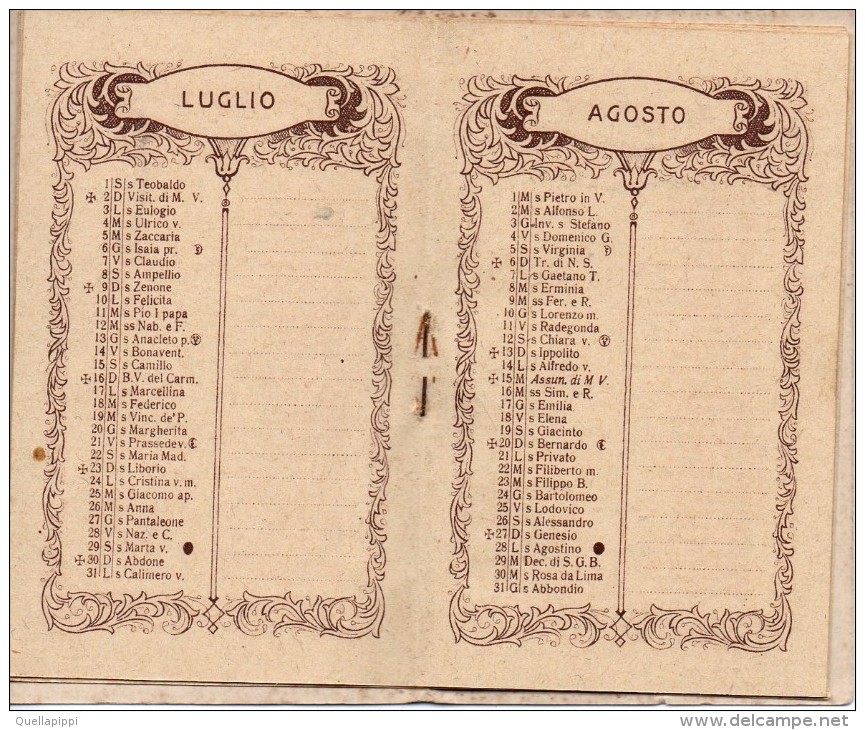 LUGLIO
1 S s Teobaldo
✠ 2 D Visit. di M. V.
3 L s Eulogio
4 M s Ulrico v.
5 M s Zaccaria
6 G s Isaia pr.
7 V s Claudio
8 S s Ampellio
✠ 9 D s Zenone
10 L s Felicita
11 M s Pio I papa
12 M ss Nab. e F.
13 G s Anacleto p.
14 V s Bonavent.
15 S s Camillo
✠ 16 D B.V. del Carm.
17 L s Marcellina
18 M s Federico
19 M s Vinc. de'P.
20 G s Margherita
21 V s Prassede v.
22 S s Maria Mad.
✠ 23 D s Liborio
24 L s Cristina v. m.
25 M s Giacomo ap.
26 M s Anna
27 G s Pantaleone
28 V s Naz. e C.
29 S s Marta v.
✠ 30 D s Abdone
31 L s Calimero v.
AGOSTO
1 M s Pietro in V.
2 M s Alfonso L.
3 G Inv. s Stefano
4 V s Domenico G.
5 S s Virginia
✠ 6 D Tr. di N. S.
7 L s Gaetano T.
8 M s Erminia
9 M ss Fer. e R.
10 G s Lorenzo m.
11 V s Radegonda
12 S s Chiara v.
✠ 13 D s Ippolito
14 L s Alfredo v.
✠ 15 M Assun. di M V.
16 M ss Sim. e R.
17 G s Emilia
18 V s Elena
19 S s Giacinto
✠ 20 D s Bernardo
21 L s Privato
22 M s Filiberto m.
23 M s Filippo B.
24 G s Bartolomeo
25 V s Lodovico
26 S s Alessandro
✠ 27 D s Genesio
28 L s Agostino
29 M Dec. di S. G. B.
30 M s Rosa da Lima
31 G s Abbondio
Quellapippi
delcampe.net